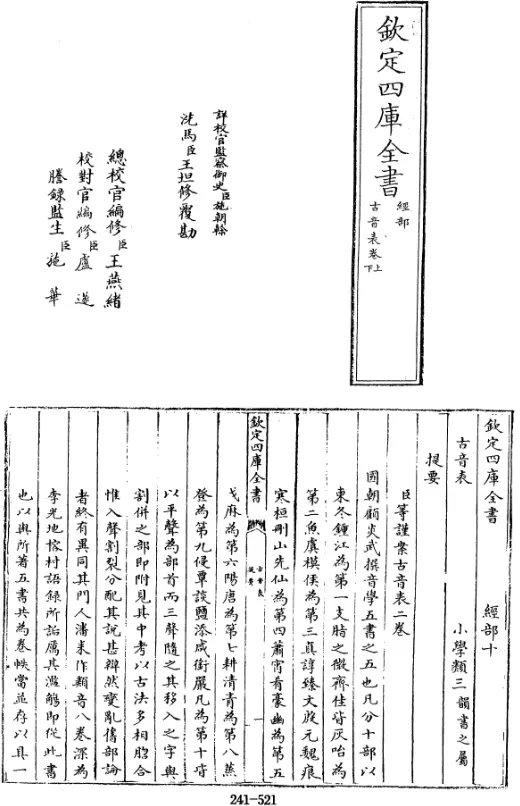 欽定四庫全書
經部
古音表卷上
下
詳校官監察御史臣施朝幹
洗馬臣王坦修覆勘
總校官編修臣王燕緒
校對官編修臣盧遂
謄録監生臣施華
欽定四庫全書 經部十
古音表 小學類三韻書之屬
提要
臣等謹案古音表二卷
國朝顧炎武撰音學五書之五也凡分十部以
東冬鍾江為第一支脂之微齊佳皆灰咍為
第二魚虞模侯為第三真諄臻文殷元魂痕
寒桓刪山先仙為第四蕭宵肴豪幽為第五
欽定四庫全書
古音表
提要
一
戈麻為第六陽唐為第七耕清青為第八蒸
登為第九侵覃談鹽添咸銜嚴凡為第十皆
以平聲為部首而三聲隨之其移入之字與
割併之部即附見其中考以古法多相脗合
惟入聲割裂分配其說甚辯然變亂舊部論
者終有異同其門人潘耒作類音八卷深為
李光地榕村語録所詬厲其濫觴即從此書
也以與所著五書共為卷帙當並存以具一
241-521